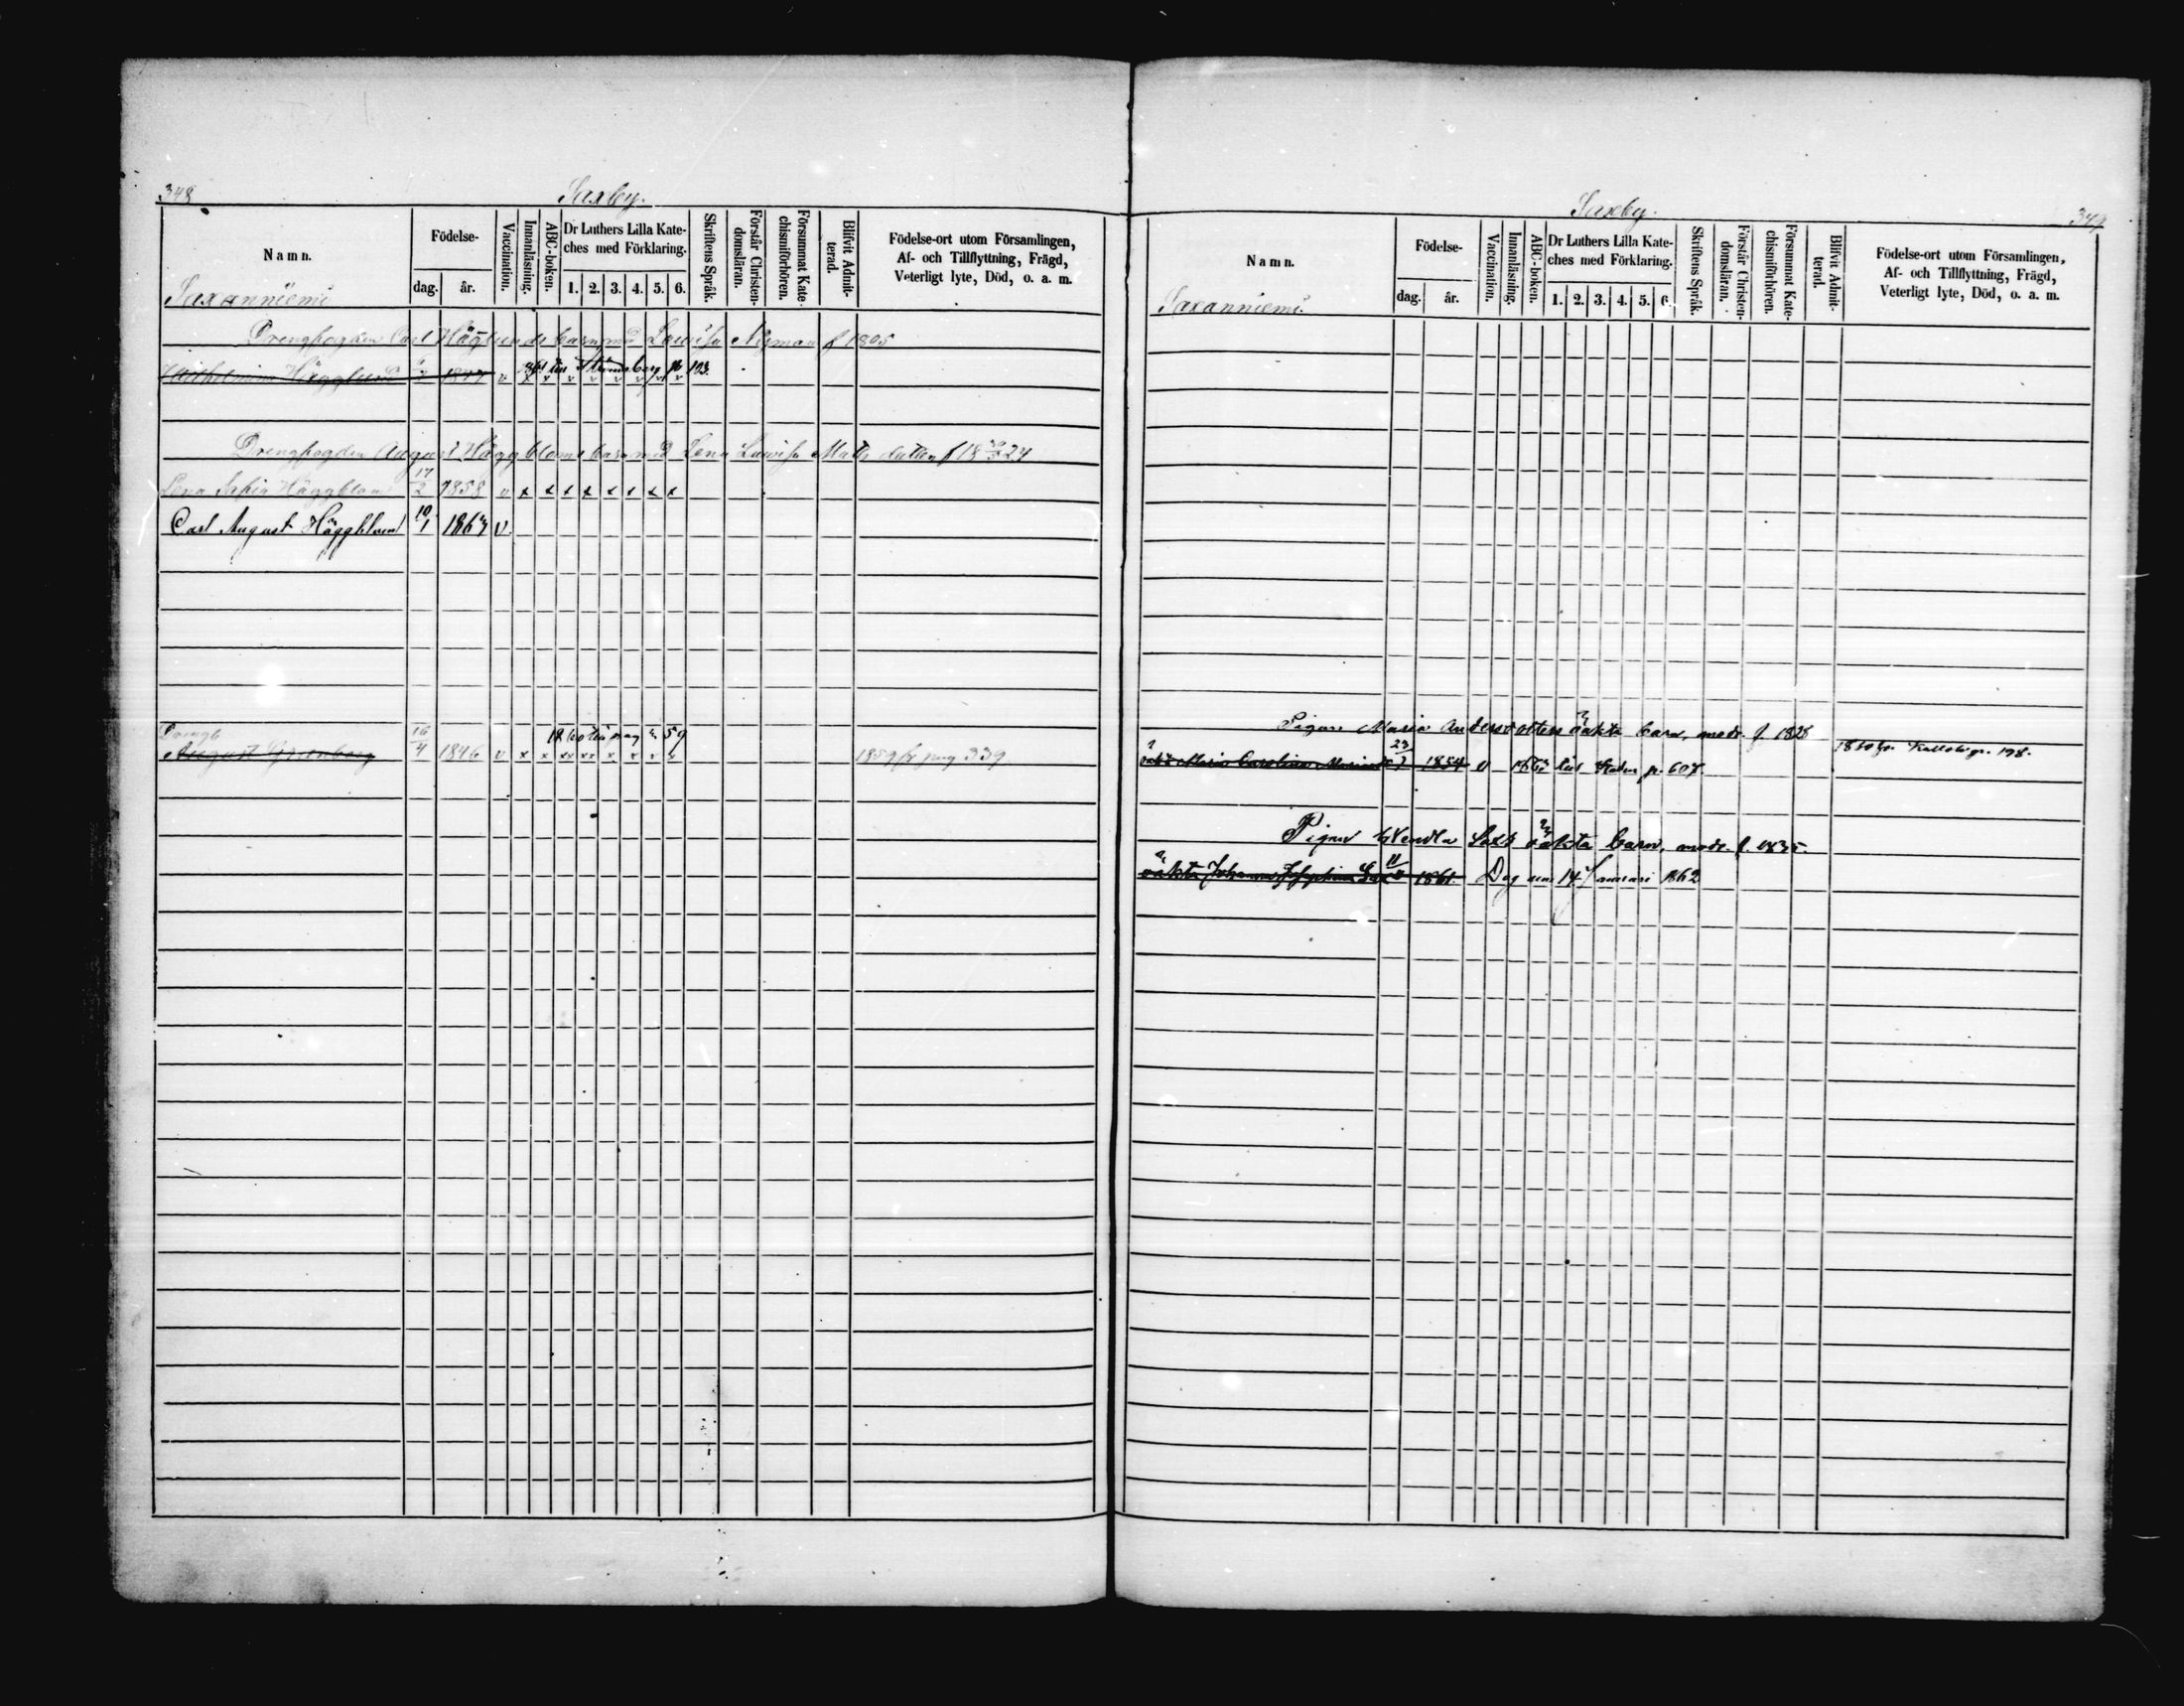 348
Saxby.
Namn.
Födelse-
dag.
år.
Vaccination.
Innanläsning.
ABC-boken.
Dr Luthers Lilla Kate-
ches med Förklaring.
1. 2. 3. 4. 5. 6.
Skriftens Språk.
Förstår Christen-
domsläran.
Försummat Kate-
chismiförhören.
Blifvit Admit-
terad.
Födelse-ort utom Församlingen,
Af- och Tillflyttning, Frägd,
Veterligt lyte, Död, o. a. m.
Saxanniemi
Drengfogden Carl Hägglunds barn med Lowisa Nyman f 1805
Wilhelmina Hägglund 1847 v
Drengfogden August Häggbloms barn med Lena Lowisa Matts dutter f 18 24
Lena Sofia Häggblom 17/2 1858 v x x x x x x x x
Carl August Häggblom 10/1 1867 v
August Grönberg 16/4 1846 v x x
1859 fr pag 339
349
Saxby.
Namn.
Födelse-
dag.
år.
Vaccination.
Innanläsning.
ABC-boken.
Dr Luthers Lilla Kate-
ches med Förklaring.
1. 2. 3. 4. 5. 6.
Skriftens Språk.
Förstår Christen-
domsläran.
Försummat Kate-
chismiförhören.
Blifvit Admit-
terad.
Födelse-ort utom Församlingen,
Af- och Tillflyttning, Frägd,
Veterligt lyte, Död, o. a. m.
Saxanniemi.
Pigan Maria Andersdotters oäkta barn, modr. f. 1828
oäkta Maria Carolina 1854 v 1867 till p. 607
p. 198.
Pigan Wendla Sax oäkta barn, modr. f. 1835.
oäkta Johanna Josephina Sax 1861. Dog den 14 Januari 1862